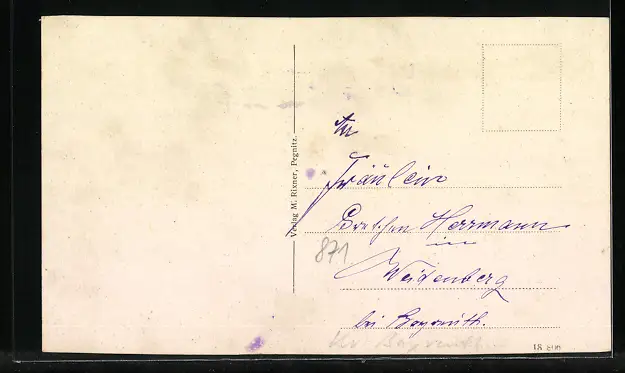 Verlag M. Rixner, Pegnitz.
Fräulein
Gretchen Herrmann
in
Weidenberg
bei Bayreuth.
871
Bayreuth